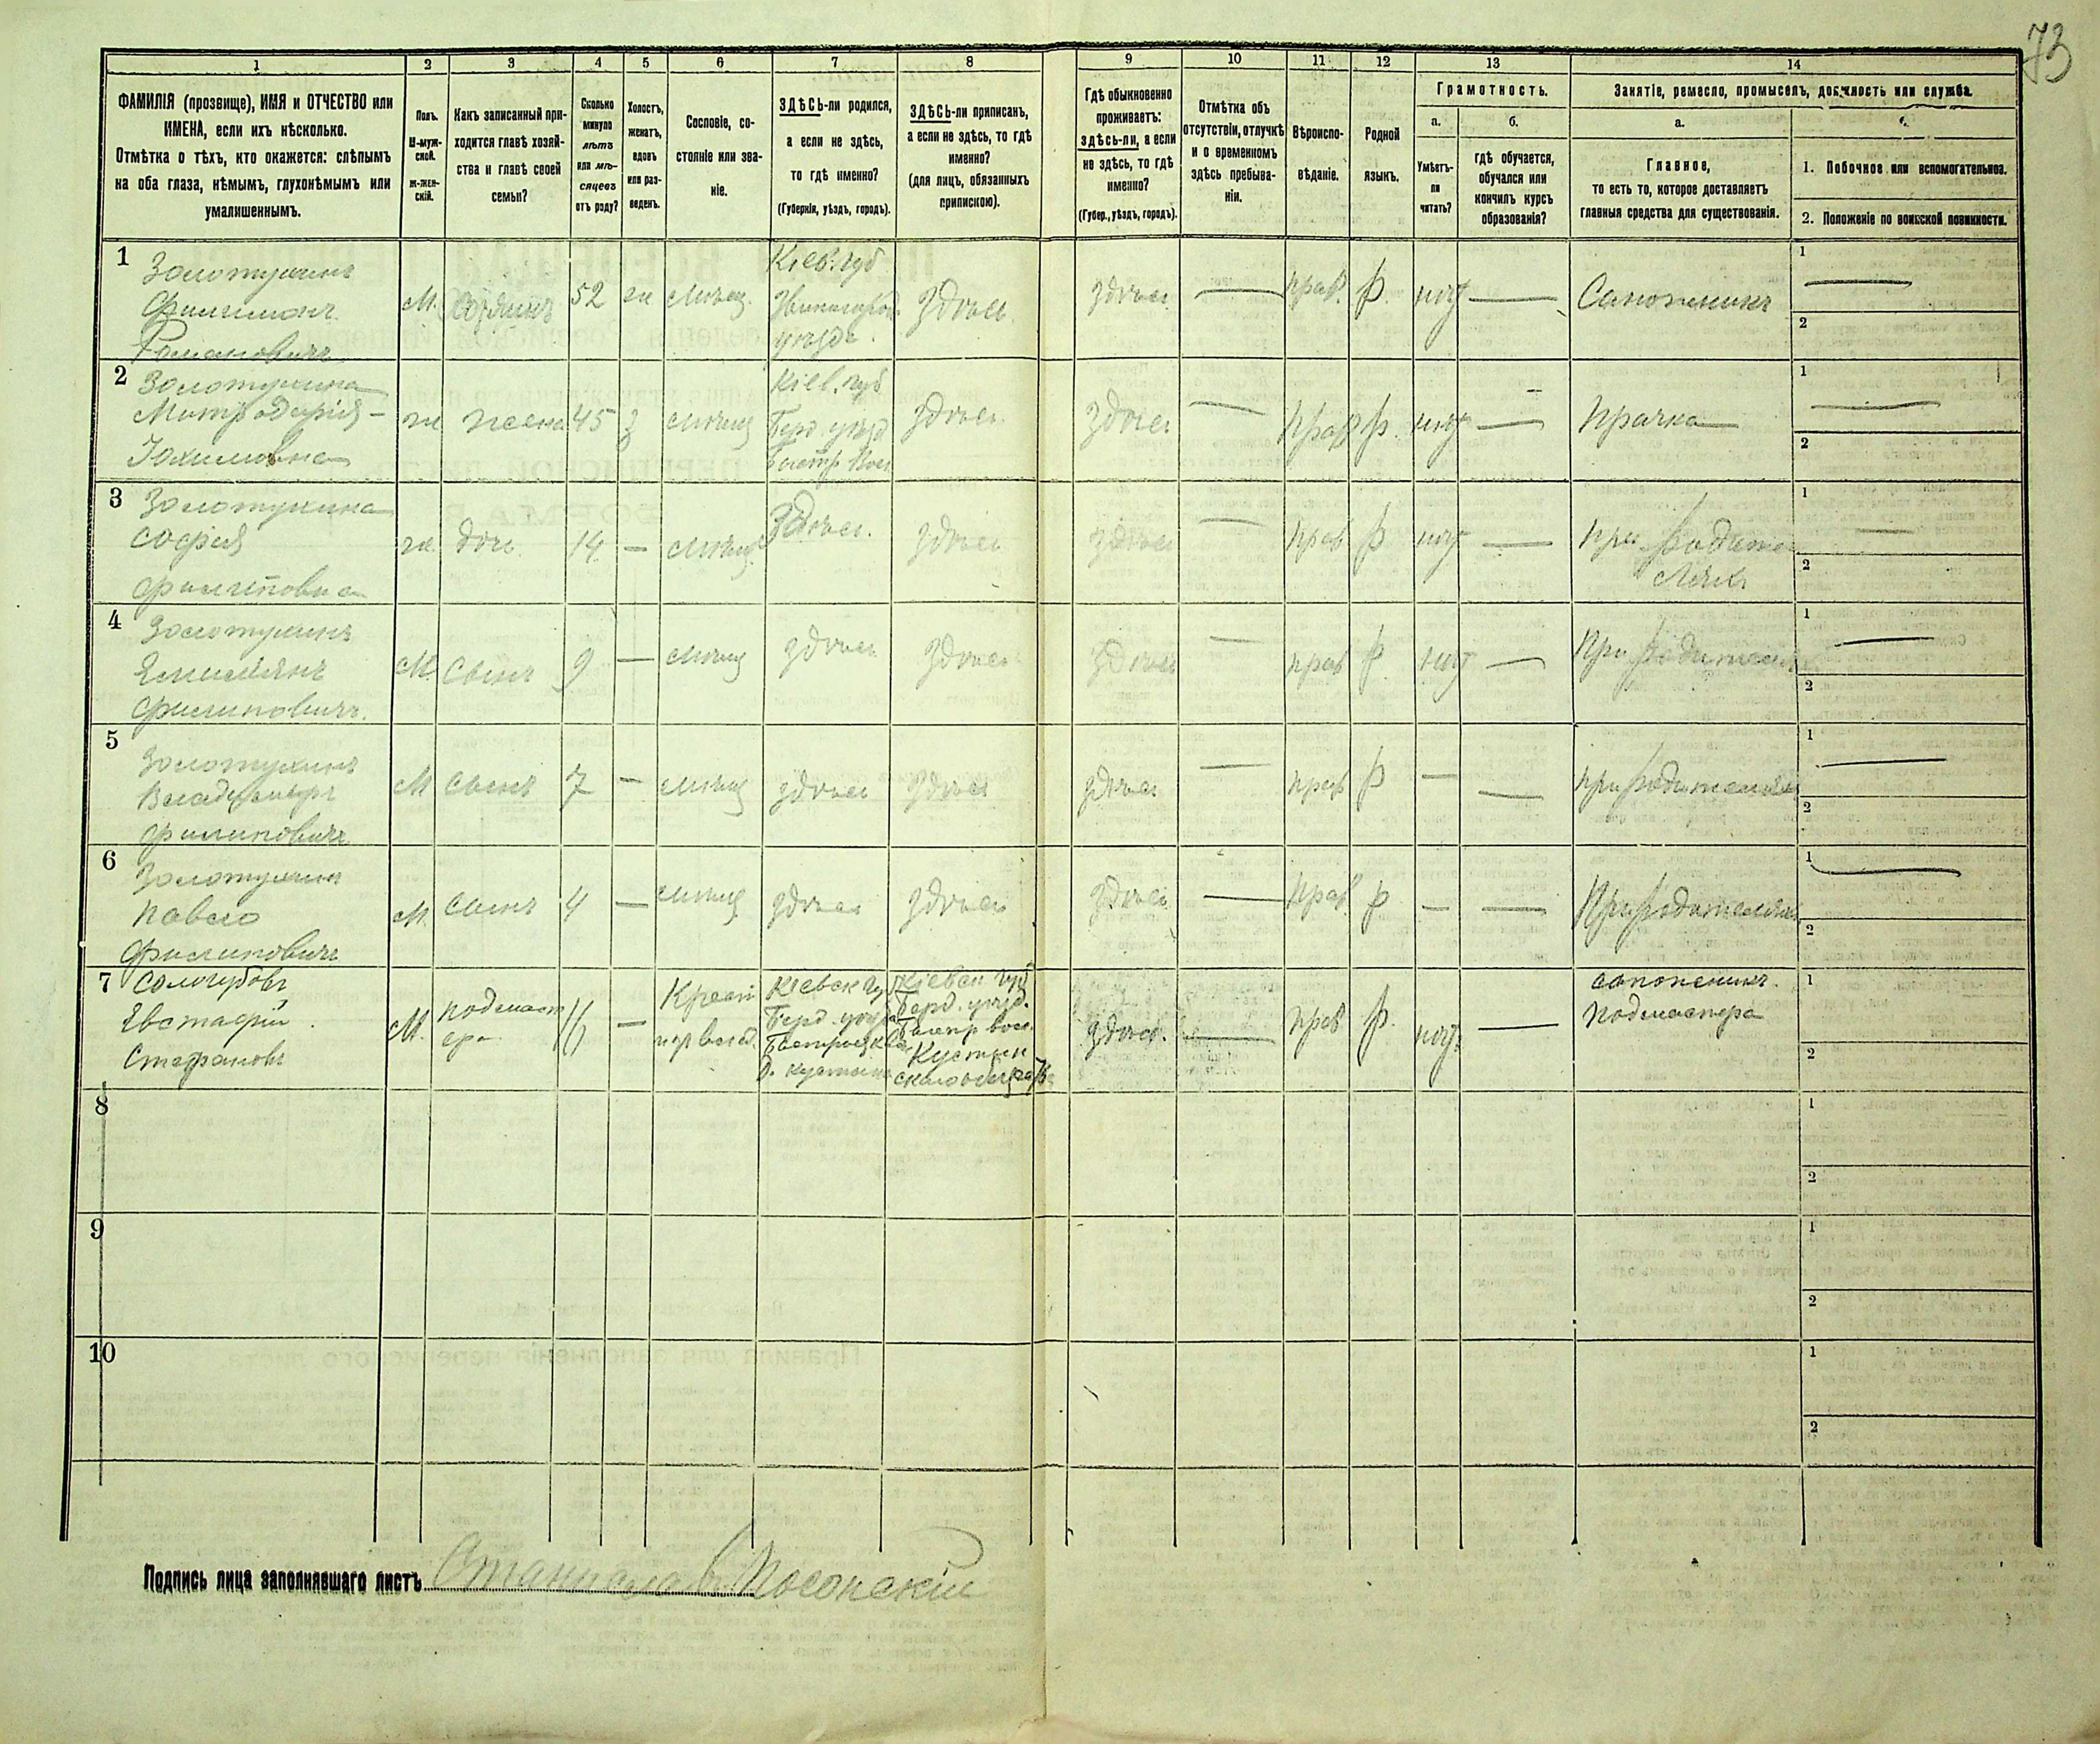 73
1 2 3 4 5 6 7 8 9 10 11 12 13 14
ФАМИЛІЯ (прозвище), ИМЯ и ОТЧЕСТВО или
ИМЕНА, если ихъ нѣсколько.
Отмѣтка о тѣхъ, кто окажется: слѣпымъ
на оба глаза, нѣмымъ, глухонѣмымъ или
умалишеннымъ.
Полъ.
М-муж-
ской.
ж-жен-
скій.
Какъ записанный при-
ходится главѣ хозяй-
ства и главѣ своей
семьи?
Сколько
минуло
лѣтъ
или мѣ-
сяцевъ
отъ роду?
Холостъ,
женатъ,
вдовъ
или раз-
веденъ.
Сословіе, со-
стояніе или зва-
ніе.
ЗДѢСЬ-ли родился,
а если не здѣсь,
то гдѣ именно?
(Губернія, уѣздъ, городъ).
ЗДѢСЬ-ли приписанъ,
а если не здѣсь, то гдѣ
именно?
(для лицъ, обязанныхъ
припискою).
Гдѣ обыкновенно
проживаетъ:
здѣсь-ли, а если
не здѣсь, то гдѣ
именно?
(Губер., уѣздъ, городъ).
Отмѣтка объ
отсутствіи, отлучкѣ
и о временномъ
здѣсь пребыва-
ніи.
Вѣроиспо-
вѣданіе.
Родной
языкъ.
Грамотность.
а.
Умѣетъ-
ли
читать?
б.
гдѣ обучается,
обучался или
кончилъ курсъ
образованія?
Занятіе, ремесло, промыселъ, должность или служба.
а.
Главное,
то есть то, которое доставляетъ
главныя средства для существованія.
1. Побочное или вспомогательное.
2. Положеніе по воинской повинности.
1
Золотухинъ
Филимонъ
Романовичъ
М. Хозяинъ 52 ж Мѣщ.
Кіев. губ
Звенигород.
уѣзда.
Здѣсь
здѣсь — прав. р. нѣт — Сапожникъ
1 —
2
2
Золотухина
Митродорія
Іохимовна
ж жена 45 з мѣщ
Кіев. губ
Берд. уѣзд
здѣсь
здѣсь — прав р. нѣт — прачка
1 —
2
3
Золотухина
София
Филиповна
ж. дочь 14 — мѣщ. Здѣсь. здѣсь
здѣсь — прав р нѣт —
при родите
ляхъ
1 —
2
4
Золотухинъ
Емиліянъ
Филиповичъ.
М. Сынъ 9 — мѣщ здѣсь здѣсь
здѣсь — прав р. нѣт — При родителяхъ
1 —
2
5
Золотухинъ
Владимиръ
Филиповичъ
М сынъ 7 — мѣщ здѣсь здѣсь
здѣсь — прав р — — при родителяхъ
1 —
2
6
Золотухин
Павело
Филиповичъ
М. Сынъ 4 — мѣщ здѣсь здѣсь
здѣсь — прав. р — — При родителяхъ
1 —
2
7
Сологубовъ
Евстафій
Стефановъ
М. подмаст
ера
16 —
Крест
Кіевск Губ
Берд. уѣзда
Кіевск Губ
Берд. уѣзд.
здѣсь. — прав р. нѣт. —
сапожникъ.
подмастера
1
2
8
1
2
9
1
2
10
1
2
Подпись лица заполнявшаго листъ Станислав